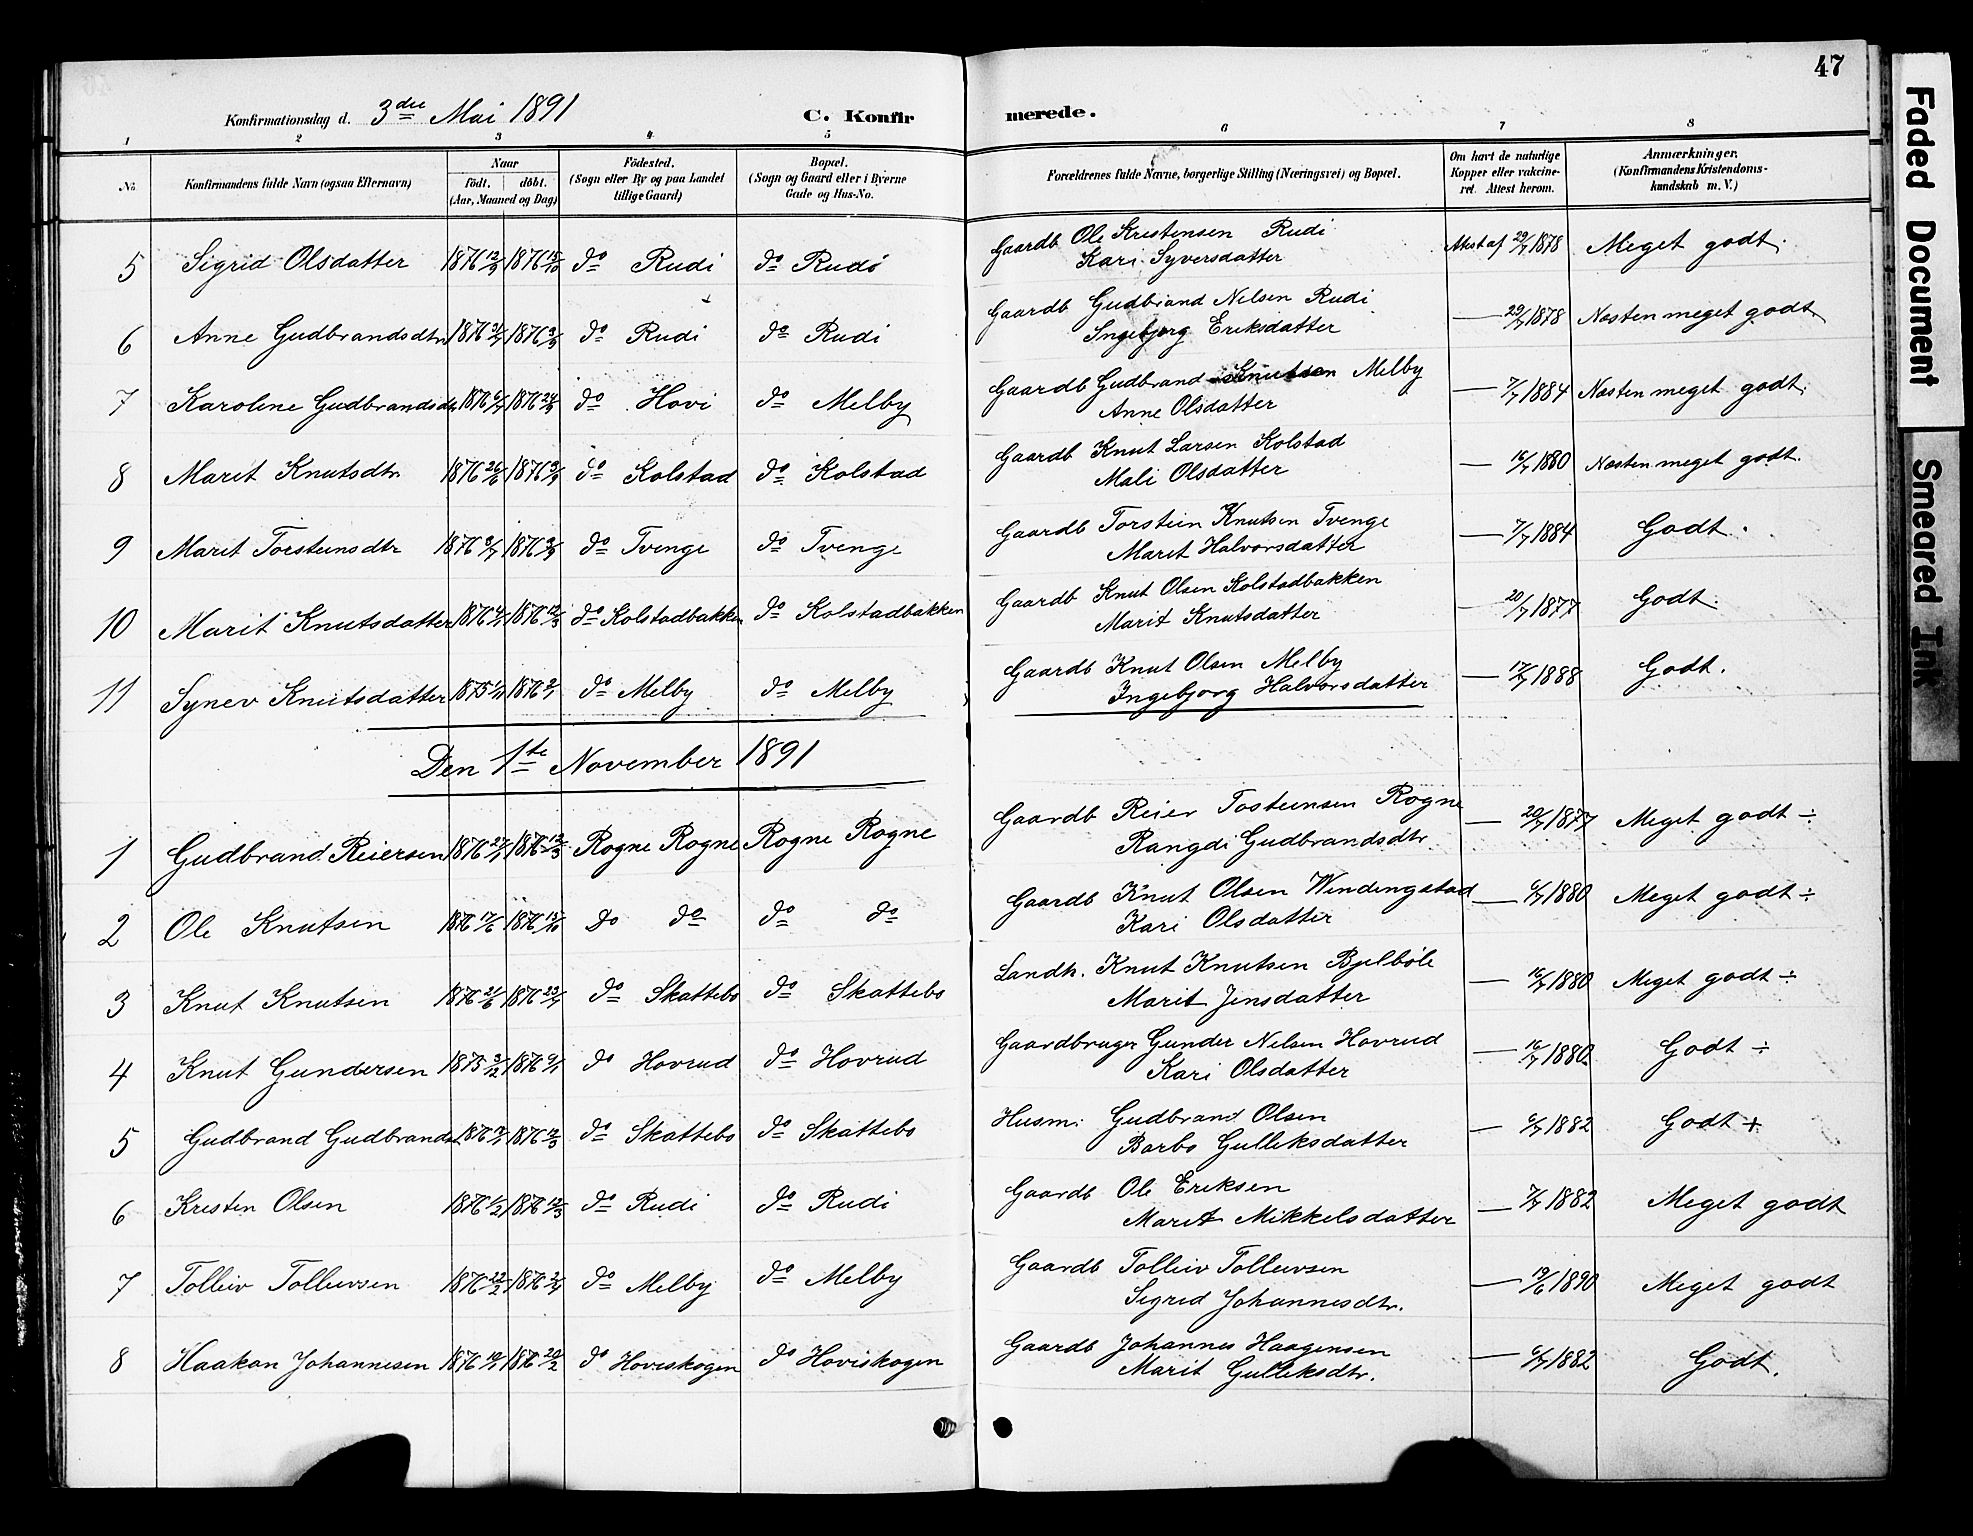 47
Konfirmationsdag d. 3die Mai 1891 C. Konfirmerede.
1 2 3 4 5 6 7 8
No. Konfirmandens fulde Navn (ogsaa Efternavn) Naar født. døbt. (Aar, Maaned og Dag) Fødested. (Sogn eller By og paa Landet tillige Gaard) Bopæl. (Sogn og Gaard eller i Byerne Gade og Hus-No. Forældrenes fulde Navne, borgerlige Stilling (Næringsvei) og Bopæl. Om havt de naturlige Kopper eller vakcineret. Attest herom. Anmærkninger. (Konfirmandens Kristendomskundskab m. V.)
5 Sigrid Olsdatter 1876 12/9 1876 15/10 do Rudi do Rudi Gaardb Ole Kristensen Rudi 29/7 1878 Meget godt.
Kari Syversdatter
6 Anne Gudbrandsdtr 1876 1876 3/9 do Rudi do Rudi Gaardb Gudbrand Nelsen Rudi — 29/7 1878 Næsten meget godt
Ingebjørg Eriksdatter
7 Karoline Gudbrandsd. 1876 1876 24/9 do Hovi do Melby Gaardb Gudbrand Knutsen Melby — 7/7 1884 Næsten meget godt.
Anne Olsdatter
8 Marit Knutsdtr 1876 26/6 1876 3/9 do Kolstad do Kolstad Gaardb Knut Larsen Kolstad — 16/7 1880 Næsten meget godt.
Mali Olsdatter
9 Marit Torsteinsdtr 1876 9/7 1876 3/9 do Tvenge do Tvenge Gaardb Torstein Knutsen Tvenge — 7/7 1884 Godt.
Marit Halvorsdatter
10 Marit Knutsdatter 1876 1876 12/3 do Kolstadbakken do Kolstadbakken Gaardb Knut Olsen Kolstadbakken — 20/7 1877 Godt.
Marit Knutsdatter
11 Synev Knutsdatter 1875 1876 2/1 do Melby do Melby Gaardb Knut Olsen Melby — 1888 Godt.
Ingebjørg Halvorsdatter
Den 1ste November 1891
1 Gudbrand Reiersen 1876 27/1 1876 12/3 Rogne Rogne Rogne Rogne Gaardb Reier Tosteinsen Rogne — 20/7 1877 Meget godt ÷
Rangdi Gudbrandsdtr
2 Ole Knutsen 1876 17/6 1876 15/10 do do do do Gaardb Knut Olsen Windingstad — 1880 Meget godt ÷
Kari Olsdatter
3 Knut Knutsen 1876 21/6 1876 23/7 do Skattebo do Skattebo Landh. Knut Knutsen Bjelbøle — 16/7 1880 Meget godt ÷
Marit Jensdatter
4 Knut Gundersen 1875 3/12 1876 9/1 do Hovrud do Hovrud Gaardbruger Gunder Nelsen Hovrud — 16/7 1880 Godt ÷
Kari Olsdatter
5 Gudbrand Gudbrands. 1876 1876 12/3 do Skattebo do Skattebo Husm. Gudbrand Olsen — 6/7 1882 Godt +
Barbo Gulleksdatter
6 Kristen Olsen 1876 1/2 1876 12/3 do Rudi do Rudi Gaardb Ole Eriksen — 7/7 1882 Meget godt
Marit Mikkelsdatter
7 Tolleiv Tolleivsen 1876 22/2 1876 2/4 do Melby do Melby Gaardb Tolleiv Tolleivsen — 19/6 1890 Meget godt
Sigrid Johannesdtr.
8 Haakan Johannesen 1876 1876 20/2 do Hoviskogen do Hoviskogen Gaardb Johannes Haagensen — 6/7 1882 Godt.
Marit Gulleksdtr.
Faded Document
Smeared Ink